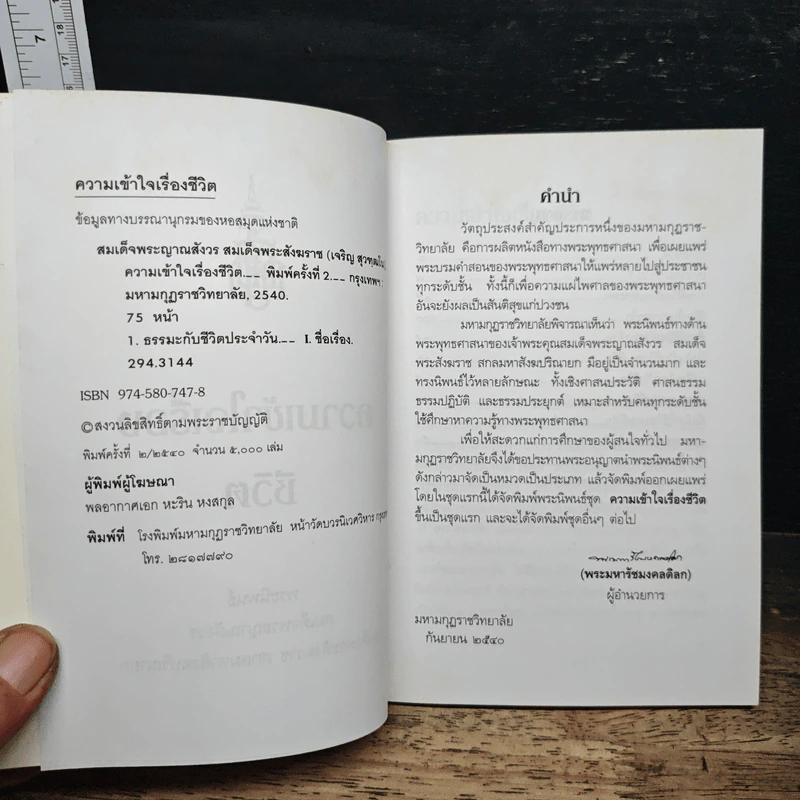 ความเข้าใจเรื่องชีวิต
ข้อมูลทางบรรณานุกรมของหอสมุดแห่งชาติ
สมเด็จพระญาณสังวร สมเด็จพระสังฆราช (เจริญ สุวฑฺฒโน)
ความเข้าใจเรื่องชีวิต.-- พิมพ์ครั้งที่ 2.-- กรุงเทพฯ :
มหามกุฏราชวิทยาลัย, 2540.
75 หน้า
1. ธรรมะกับชีวิตประจำวัน.-- I. ชื่อเรื่อง.
294.3144
ISBN 974-580-747-8
©สงวนลิขสิทธิ์ตามพระราชบัญญัติ
พิมพ์ครั้งที่ ๒/๒๕๔๐ จำนวน ๕,๐๐๐ เล่ม
ผู้พิมพ์ผู้โฆษณา
พลอากาศเอก หะริน หงสกุล
พิมพ์ที่ โรงพิมพ์มหามกุฏราชวิทยาลัย หน้าวัดบวรนิเวศวิหาร
โทร. ๒๘๑๗๗๙๐
คำนำ
วัตถุประสงค์สำคัญประการหนึ่งของมหามกุฏราช-
วิทยาลัย คือการผลิตหนังสือทางพระพุทธศาสนา เพื่อเผยแพร่
พระบรมคำสอนของพระพุทธศาสนาให้แพร่หลายไปสู่ประชาชน
ทุกระดับชั้น ทั้งนี้ก็เพื่อความแผ่ไพศาลของพระพุทธศาสนา
อันจะยังผลเป็นสันติสุขแก่ปวงชน
มหามกุฏราชวิทยาลัยพิจารณาเห็นว่า พระนิพนธ์ทางด้าน
พระพุทธศาสนาของเจ้าพระคุณสมเด็จพระญาณสังวร สมเด็จ
พระสังฆราช สกลมหาสังฆปริณายก มีอยู่เป็นจำนวนมาก และ
ทรงนิพนธ์ไว้หลายลักษณะ ทั้งเชิงศาสนประวัติ ศาสนธรรม
ธรรมปฏิบัติ และธรรมประยุกต์ เหมาะสำหรับคนทุกระดับชั้น
ใช้ศึกษาหาความรู้ทางพระพุทธศาสนา
เพื่อให้สะดวกแก่การศึกษาของผู้สนใจทั่วไป มหา-
มกุฏราชวิทยาลัยจึงได้ขอประทานพระอนุญาตนำพระนิพนธ์ต่างๆ
ดังกล่าวมาจัดเป็นหมวดเป็นประเภท แล้วจัดพิมพ์ออกเผยแพร่
โดยในชุดแรกนี้ได้จัดพิมพ์พระนิพนธ์ชุด ความเข้าใจเรื่องชีวิต
ขึ้นเป็นชุดแรก และจะได้จัดพิมพ์ชุดอื่นๆ ต่อไป
(พระมหารัชมงคลดิลก)
ผู้อำนวยการ
มหามกุฏราชวิทยาลัย
กันยายน ๒๕๔๐
7
17
18